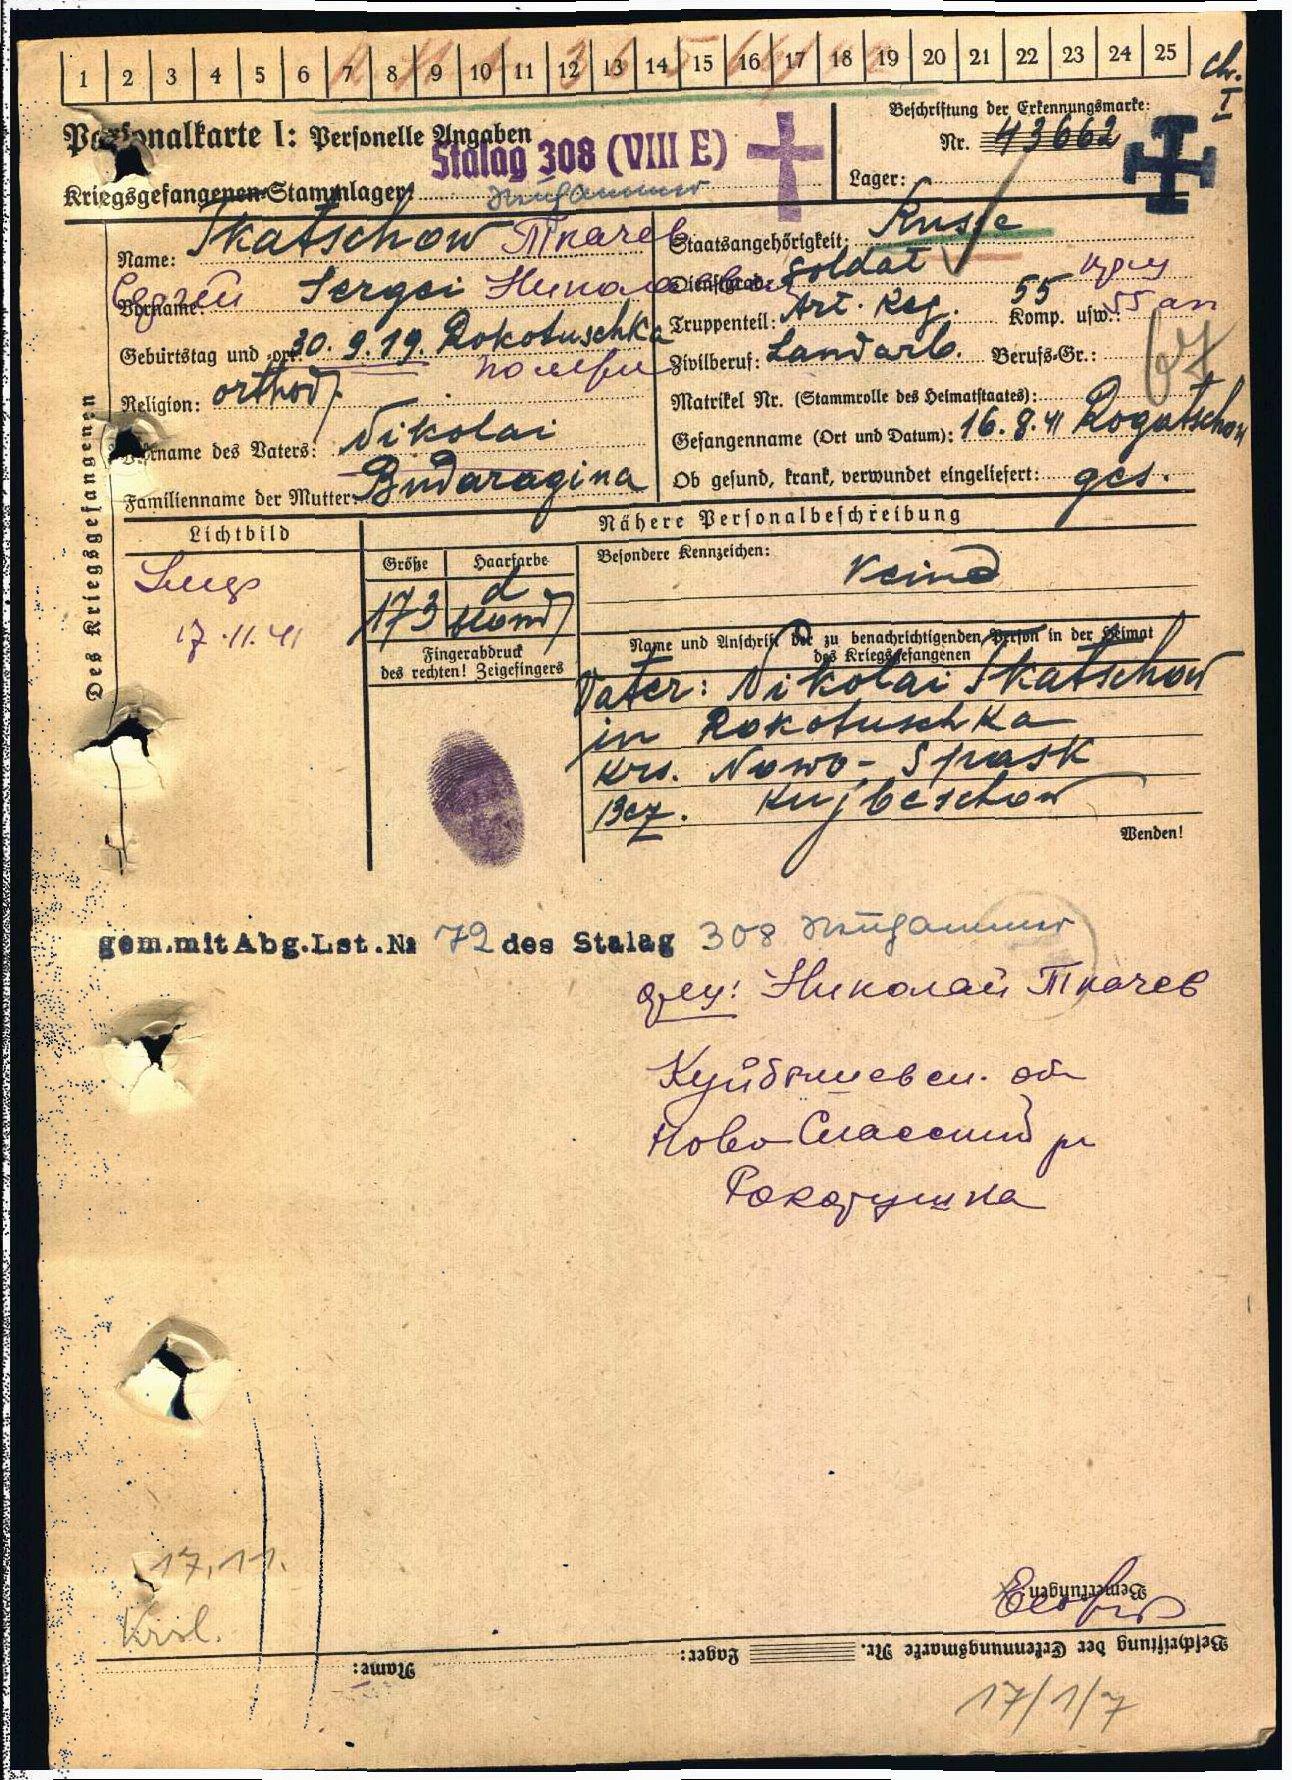 1 2 3 4 5 6 7 8 9 10 11 12 13 14 15 16 17 18 19 20 21 22 23 24 25
ch. I
Personalkarte I: Personelle Angaben
Stalag 308 (VIII E)
Kriegsgefangenen-Stammlager: Neuhammer
Beschriftung der Erkennungsmarke:
Nr. 43662
Lager:
Des Kriegsgefangenen
Name: Tkatschow Ткачев
Vorname: Сергей Sergei Николаевич
Geburtstag und -ort: 30. 9. 19. Rokotuschka
Religion: orthod.
Vorname des Vaters: Nikolai
Familienname der Mutter: Budaragina
Staatsangehörigkeit: Russe
Dienstgrad: Soldat
Truppenteil: Art. Reg. 55 Komp. usw.: 55 ап
Zivilberuf: Landarb. Berufs-Gr.: 67
Matrikel Nr. (Stammrolle des Heimatstaates):
Gefangenname (Ort und Datum): 16. 8. 41 Rogatschow
Ob gesund, krank, verwundet eingeliefert: ges.
Lichtbild
17.11.41
Nähere Personalbeschreibung
Größe Haarfarbe
173 d blond
Besondere Kennzeichen: Keine
Fingerabdruck
des rechten! Zeigefingers
Name und Anschrift der zu benachrichtigenden Person in der Heimat
des Kriegsgefangenen
Vater: Nikolai Tkatschow
in Rokotuschka
Krs. Nowo-Spask
Bez. Kujbeschow
Wenden!
gem.mit Abg.Lst.№ 72 des Stalag 308 Neuhammer
отец: Николай Ткачев
Куйбышевск. об
Ново Спасский р
Рокотушка
17.11.
Bemerkungen:
Beschriftung der Erkennungsmarke Nr. Lager: Name:
17/1/7